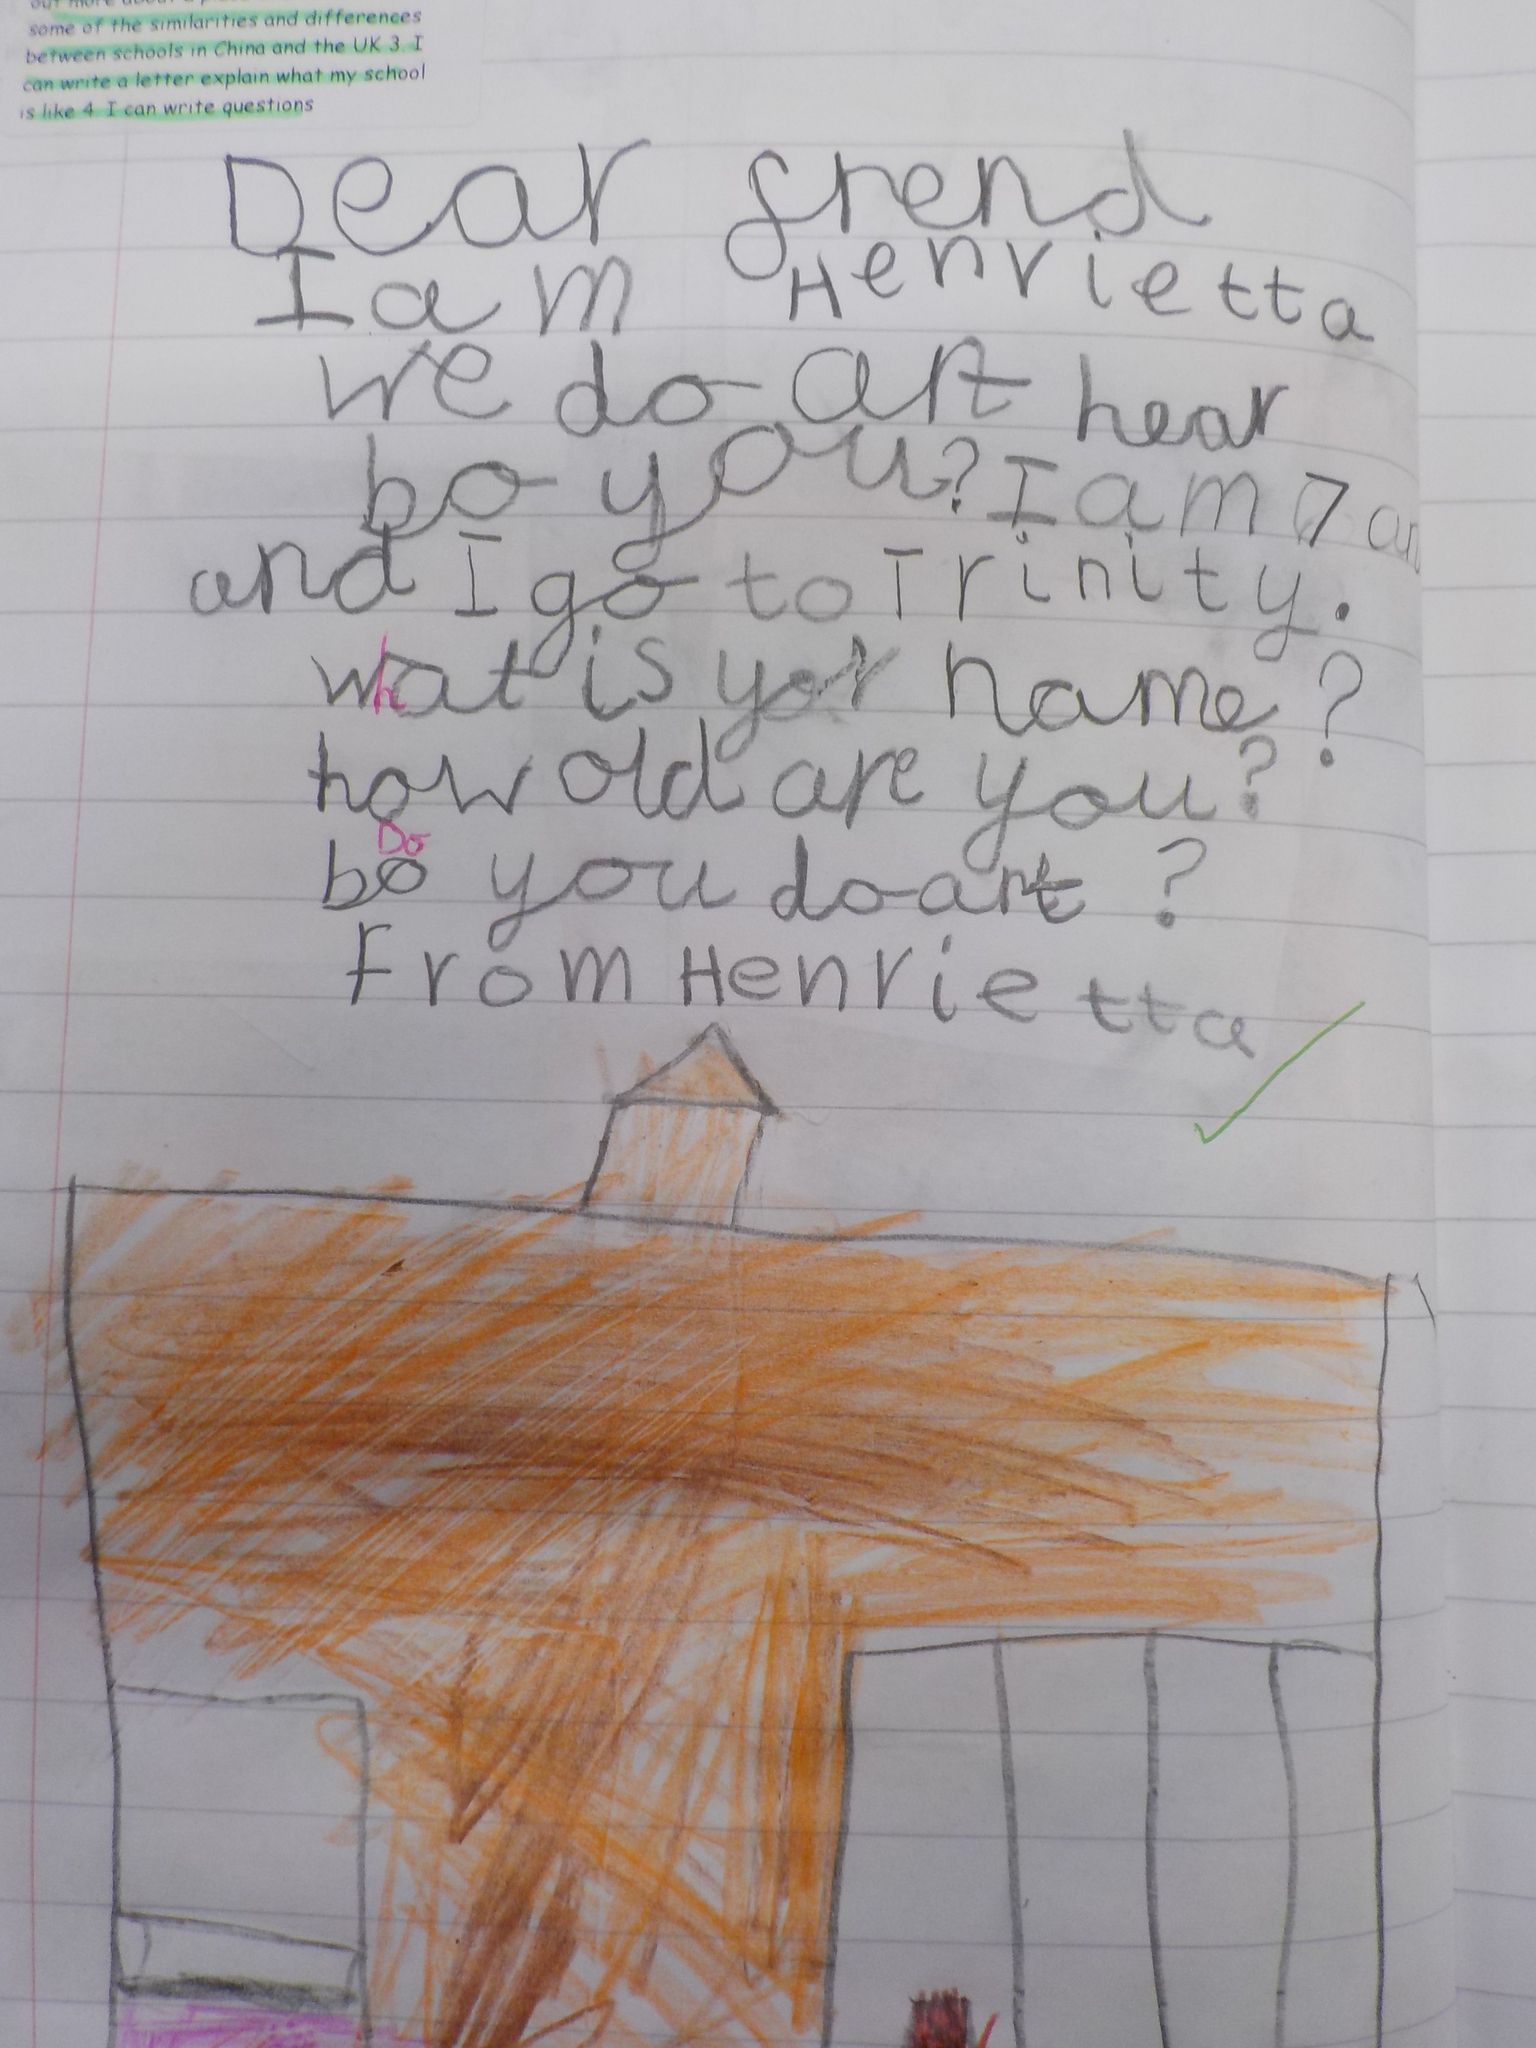 some of the similarities and differences
between schools in China and the UK 3. I
can write a letter explain what my school
is like 4. I can write questions
Dear frend
I am Henrietta
we do art hear
bo you? I am 7 an
and I go to Trinity.
what is yor name?
how old are you?
Do
bo you do art?
From Henrietta